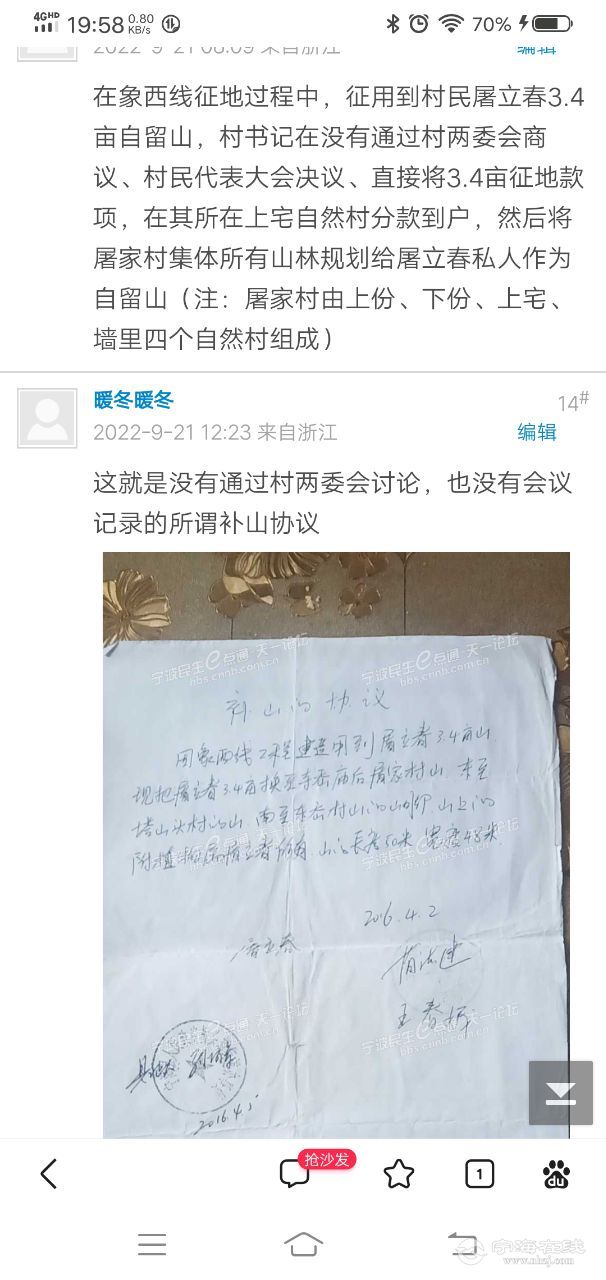 4G HD
19:58
0.80
KB/s
70%
2022-9-21 08:09 来自浙江
编辑
在象西线征地过程中，征用到村民屠立春3.4
亩自留山，村书记在没有通过村两委会商
议、村民代表大会决议、直接将3.4亩征地款
项，在其所在上宅自然村分款到户，然后将
屠家村集体所有山林规划给屠立春私人作为
自留山（注：屠家村由上份、下份、上宅、
墙里四个自然村组成）
暖冬暖冬
14#
2022-9-21 12:23 来自浙江
编辑
这就是没有通过村两委会讨论，也没有会议
记录的所谓补山协议
宁波民生e点通 天一论坛
bbs.cnnb.com.cn
山的协议
因象西线工程建造用到屠立春3.4亩山
现把屠立春3.4亩换至东岙庙后屠家村山
塔山头村的山，南至东岙村山的山脚，山上的
附植物属屠立春所有，山的长度50米 宽度48米
2016.4.2
屠立春
王春
2016.4.5
抢沙发
1
du
宁海在线
www.nhzj.com